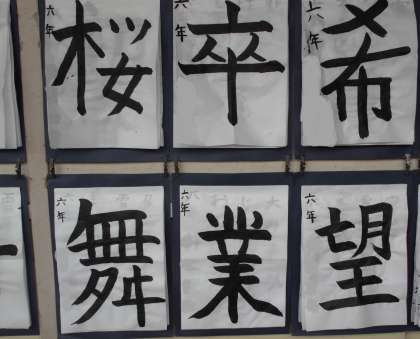 希
六年
望
六年
卒
六年
業
六年
桜
六年
舞
六年